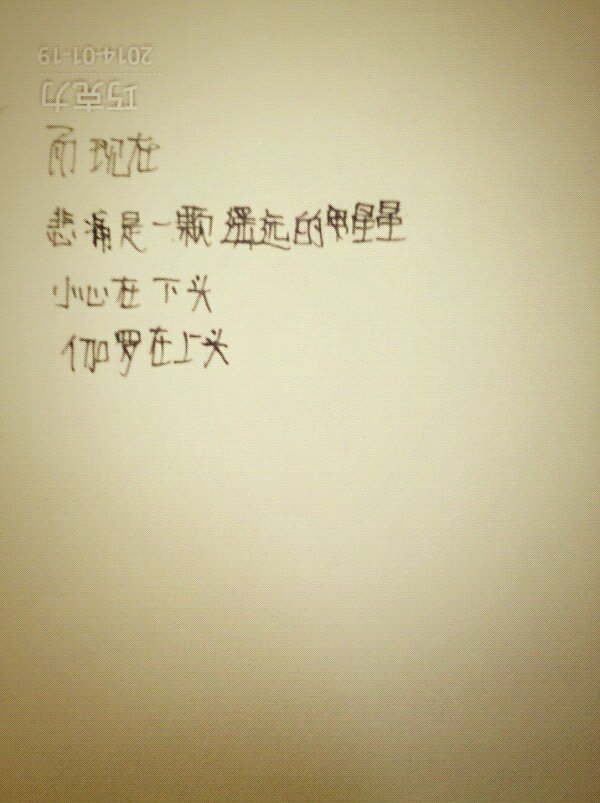 2014-01-19
巧克力
而现在
悲痛是一颗遥远的星星
小心在下头
伽罗在上头